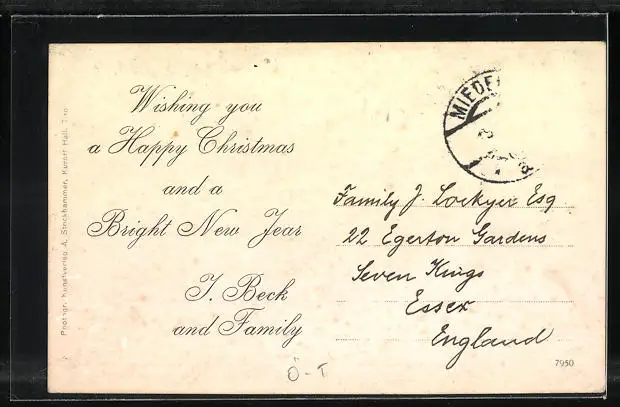 Wishing you
a Happy Christmas
and a
Bright New Year
J. Beck
and Family
Family J. Lockyer Esq
22 Egerton Gardens
Seven Kings
Essex
England
MIEDE
Photogr. Kunstverlag A. Stockhammer, Kurort Hall, Tirol
7950
O-T